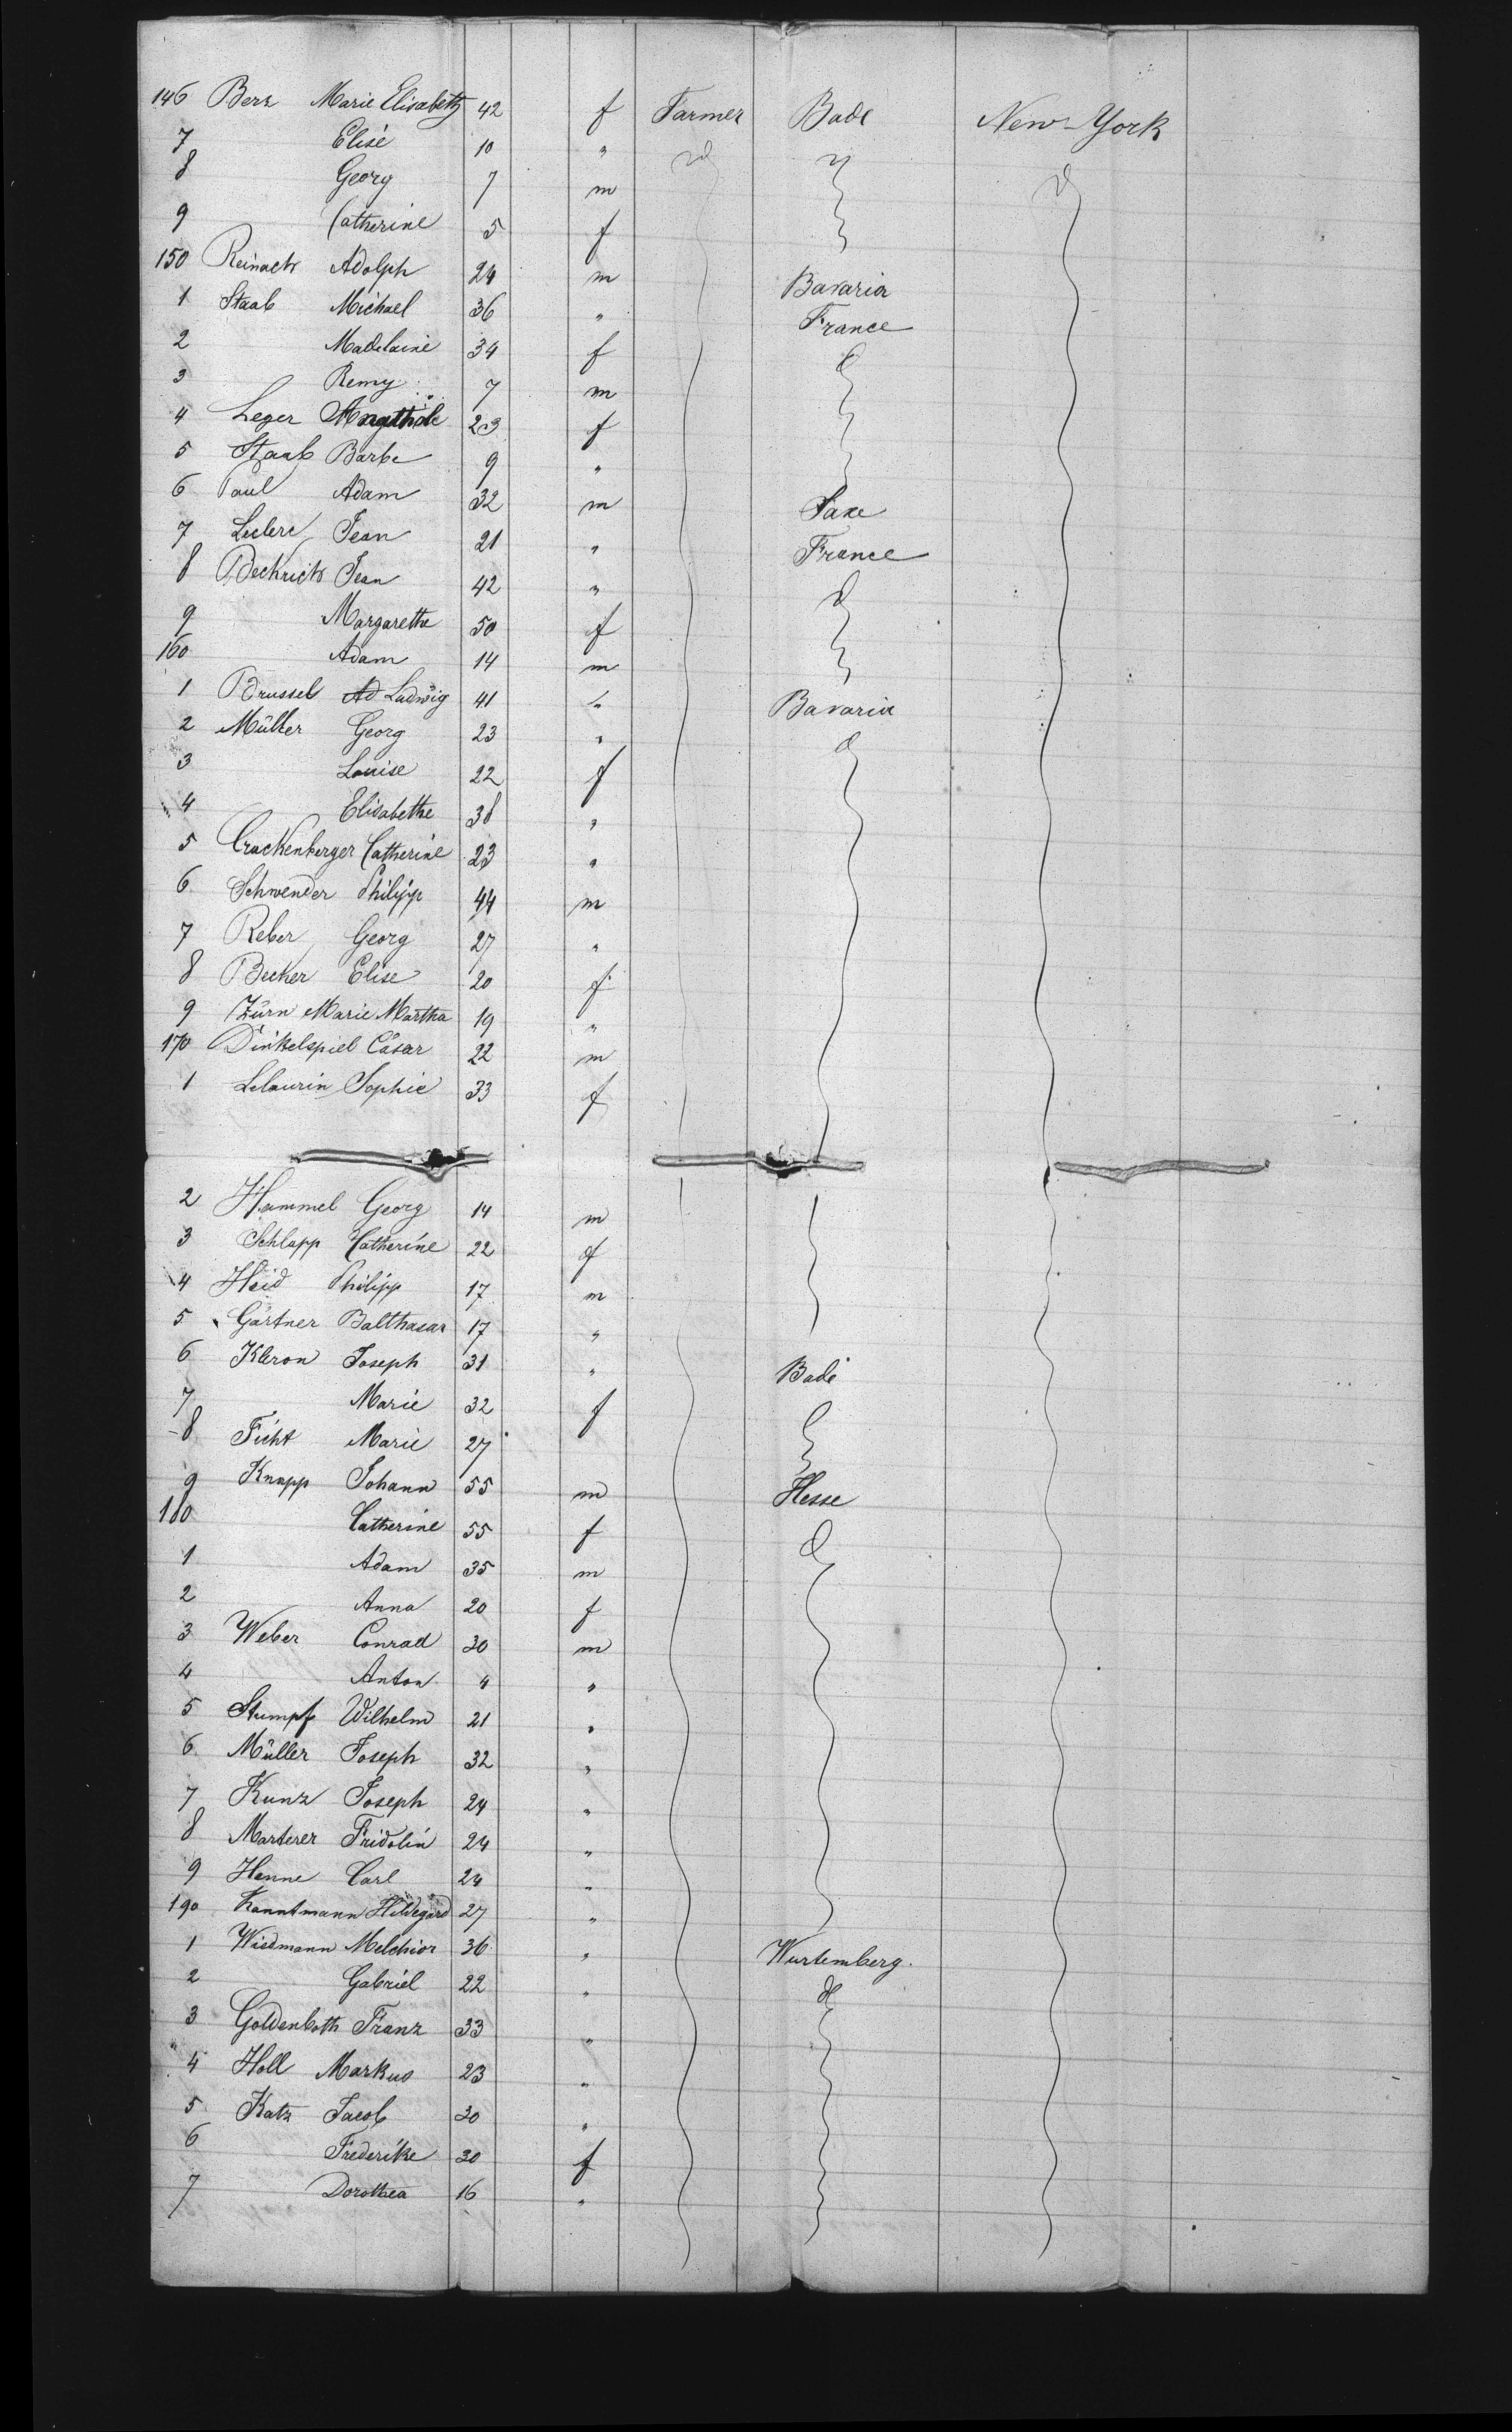 146 Berz Marie Elisabeth 42 f Farmer Bade New-York
7 Elise 10 "
8 Georg 7 m
9 Catherine 5 f
150 Reinach Adolph 24 m Bavaria
1 Staab Michael 36 " France
2 Madelaine 34 f
3 Remy 7 m
4 Leger 23 f
5 Staab Barbe 9 "
6 Paul Adam 32 m Saxe
7 Leclerc Jean 21 " France
8 Jean 42 "
9 Margarethe 50 f
160 Adam 14 m
1 Brussel Ad Ludwig 41 " Bavaria
2 Müller Georg 23 "
3 Louise 22 f
4 Elisabethe 38 "
5 Crackenberger Catherine 23 "
6 Schwender Philipp 44 m
7 Reber Georg 27 "
8 Becker Elise 20 f
9 Zürn Marie Martha 19 "
170 Dinkelspiel Cäsar 22 m
1 Lelaurin Sophie 33 f
2 Hammel Georg 14 m
3 Schlapp Catherine 22 f
4 Heid Philipp 17 m
5 Gärtner Balthasar 17 "
6 Kleron Joseph 31 " Bade
7 Marie 32 f
8 Ficht Marie 27
9 Knapp Johann 55 m Hesse
180 Catherine 55 f
1 Adam 35 m
2 Anna 20 f
3 Weber Conrad 30 m
4 Anton 4 "
5 Stumpf Wilhelm 21 "
6 Müller Joseph 32 "
7 Kunz Joseph 24 "
8 Marterer Fridolin 24 "
9 Henne Carl 24 "
190 Kanntmann Hildegard 27 "
1 Wiedmann Melchior 36 " Wurtemberg.
2 Gabriel 22 "
3 Goldenboth Franz 33 "
4 Holl Markus 23 "
5 Katz Jacob 30 "
6 Frederike 30 f
7 Dorothea 16 "